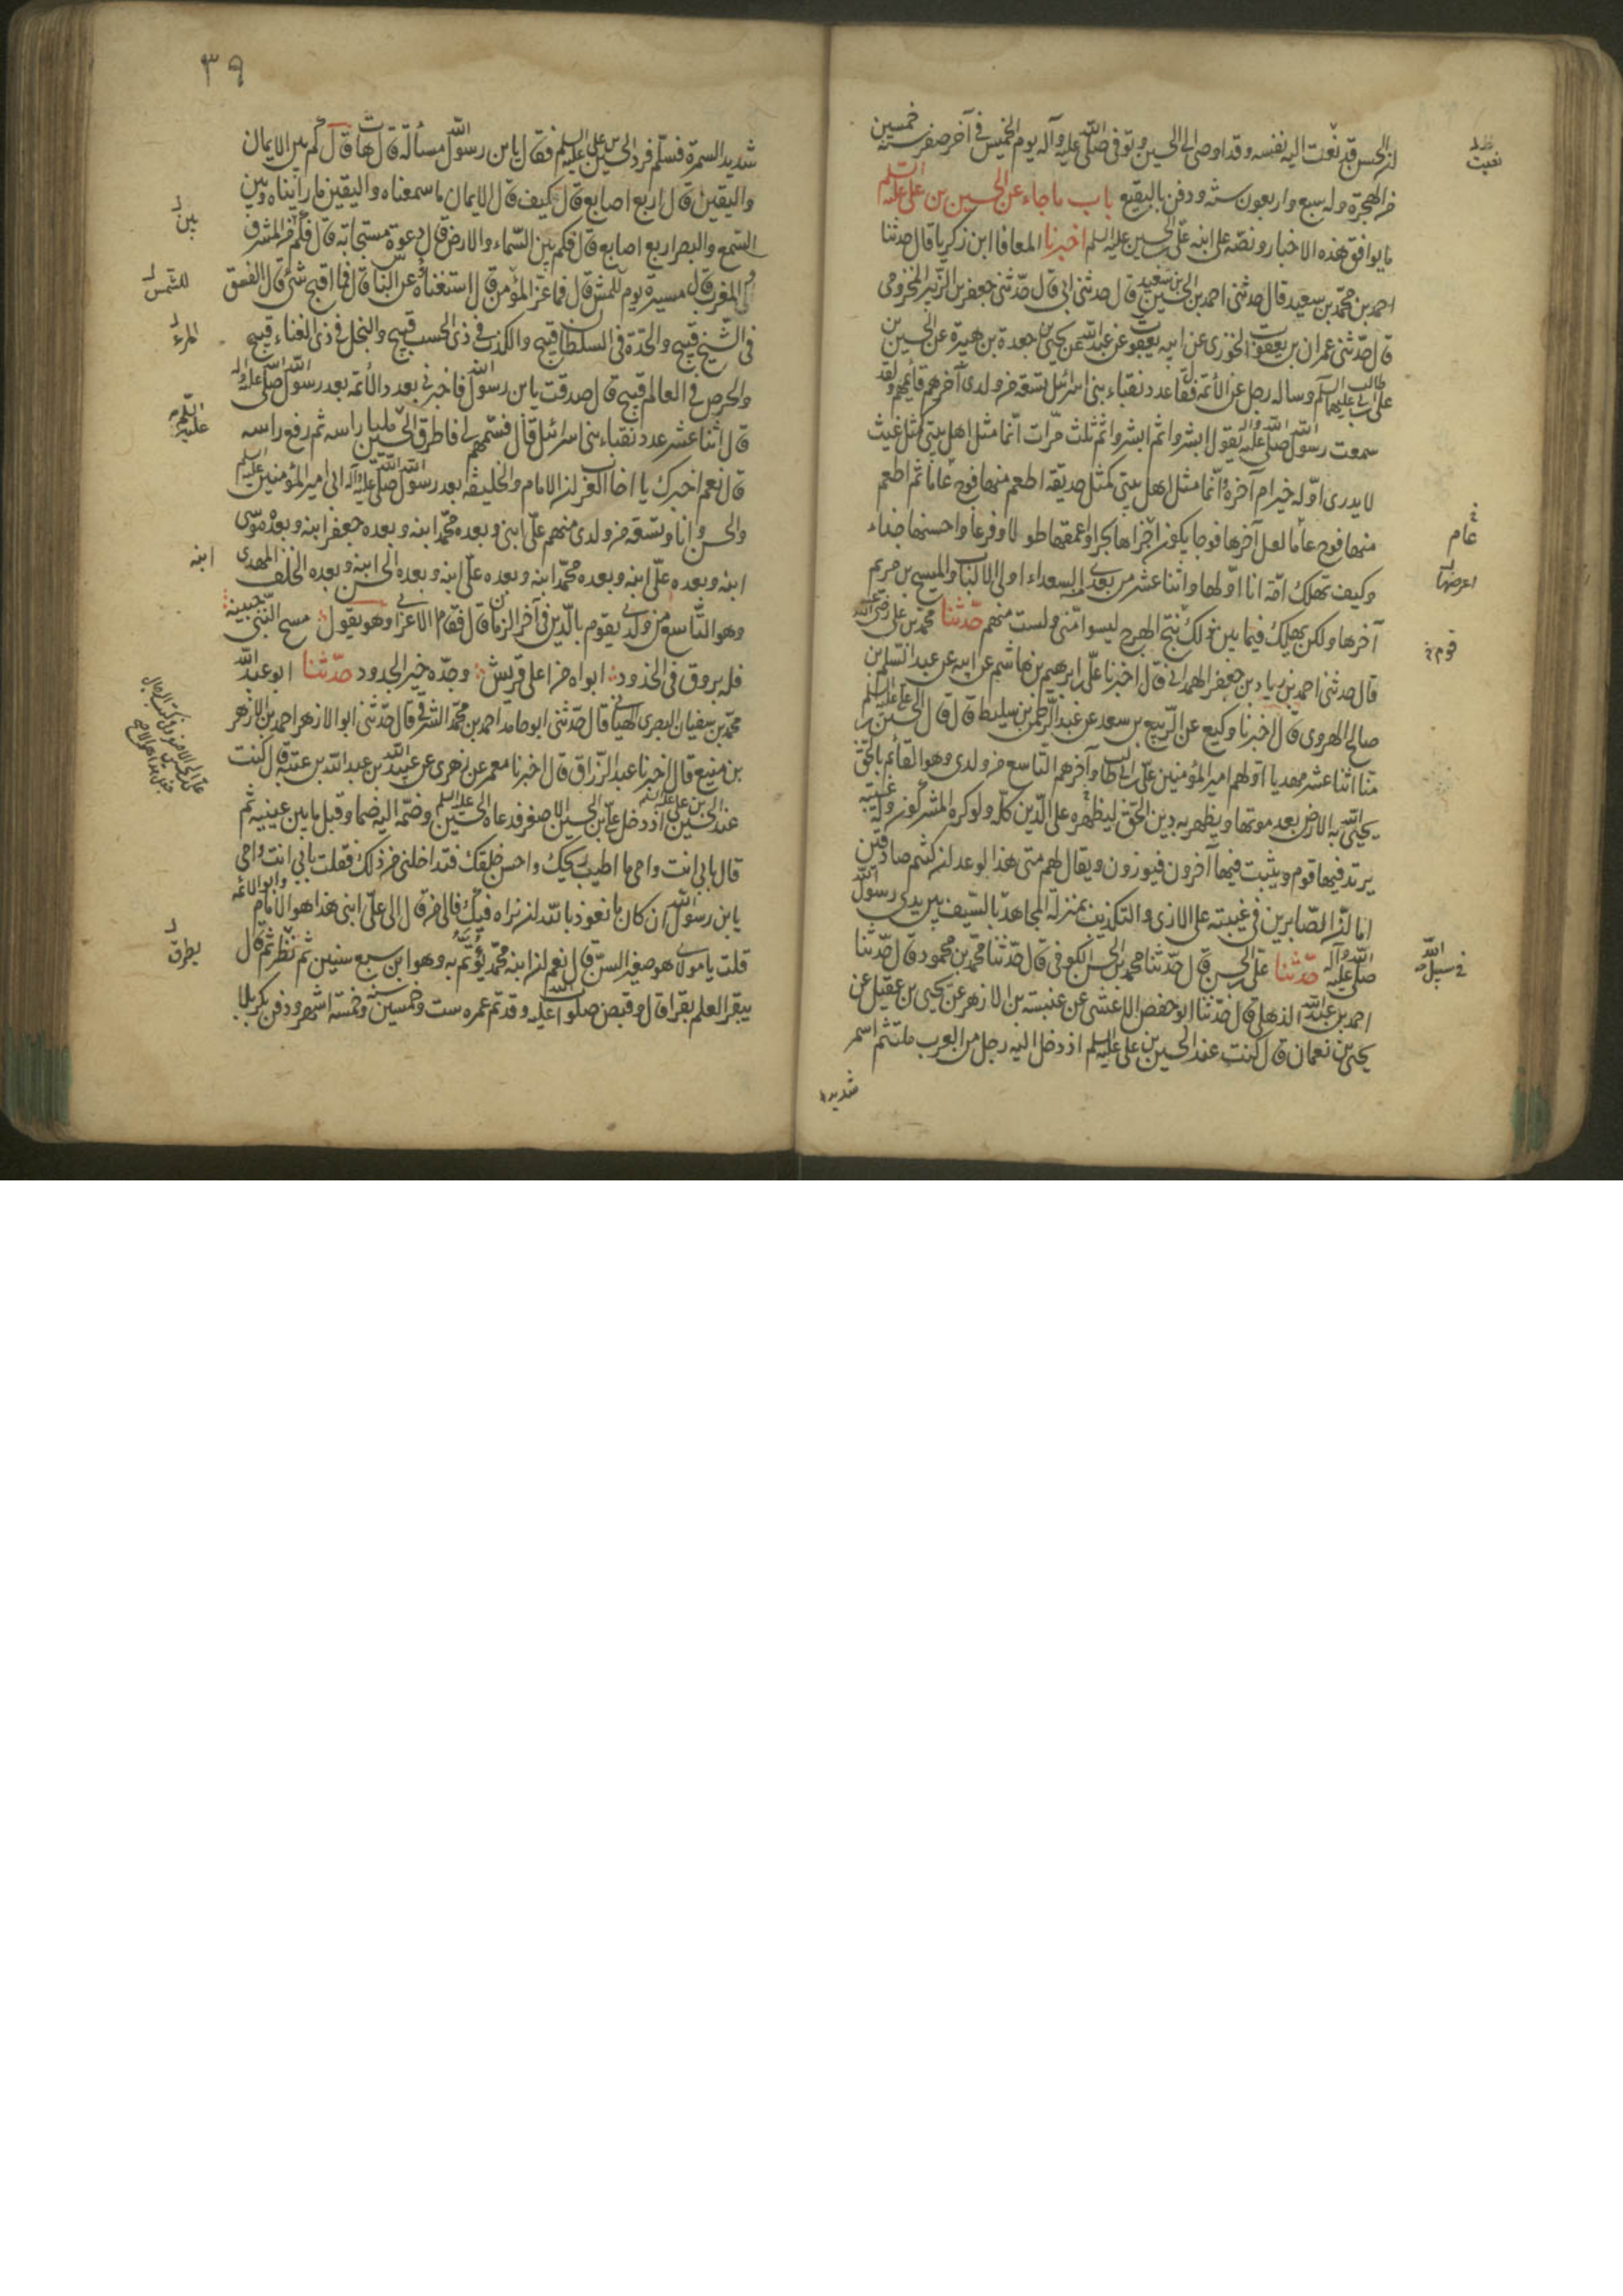 ان الحسن قد نعيت اليه نفسه وقد اوصى الى الحسين وتوفى صلى الله عليه وآله يوم الخميس فى آخر صفر سنة خمسين
من الهجرة وله سبع واربعون سنة ودفن بالبقيع باب ما جاء عن الحسين بن على عليه السلم
ما يوافق هذه الاخبار ونصه على ابنه على بن الحسين عليه السلم اخبرنا المعافا ابن زكريا قال حدثنا
احمد بن محمد بن سعيد قال حدثنى احمد بن الحسين بن سعيد قال حدثنى ابى قال حدثنى جعفر بن الزبير المخزومى
قال حدثنى عمران بن يعقوب الجوزى عن ابيه يعقوب عن عبد الله عن يحيى بن جعدة بن هبيرة عن الحسين بن
على بن ابى طالب عليهما السلم وساله رجل عن الأئمة فقال عدد نقباء بنى اسرائيل تسعة من ولدى آخرهم قائمهم ولقد
سمعت رسول الله صلى الله عليه وآله يقول ابشروا ثم ابشروا ثلث مرات انما مثل اهل بيتى كمثل غيث
لا يدرى اوله خير ام آخره وانما مثل اهل بيتى كمثل حديقة اطعم منها فوج عاما ثم اطعم
منها فوج عاما لعل آخرها فوجا يكون اجراها بحرا واعمقها طولا وفرعا واحسنها جناء
وكيف تهلك امة انا اولها واثنا عشر من بعدى السعداء اولى الالباب والمسيح بن مريم
آخرها ولكن يهلك فيما بين ذلك نتج الهرج ليسوا منى ولست منهم حدثنا محمد بن على رضى الله عنه
قال حدثنى احمد بن زياد بن جعفر الهمدانى قال اخبرنا على بن ابرهيم بن هاشم عن ابيه عن عبد السلم بن
صالح الهروى قال اخبرنا وكيع عن الربيع بن سعد عن عبد الرحمن بن سليط قال قال الحسين بن على عليه السلم
منا اثنا عشر مهديا اولهم امير المؤمنين على بن ابى طالب وآخرهم التاسع من ولدى وهو القائم بالحق
يحيى الله به الارض بعد موتها ويظهر به دين الحق ليظهره على الدين كله ولو كره المشركون وله غيبة
يرتد فيها قوم ويثبت فيها آخرون فيوزون ويقال لهم متى هذا الوعد ان كنتم صادقين
اما ان الصابرين فى غيبته على الاذى والتكذيب بمنزلة المجاهد بالسيف بين يدى رسول الله
صلى الله عليه وآله حدثنا على بن الحسن قال حدثنا محمد بن الحسن الكوفى قال حدثنا محمد بن محمود قال حدثنا
احمد بن عبد الله الذهلى قال حدثنا ابو حفص الاعشى عن عنبسة بن الازهر عن يحيى بن عقيل عن
يحيى بن نعمان قال كنت عند الحسين بن على عليه السلم اذ دخل اليه رجل من العرب ملتثم اسمر
شديد
نعيت
عام
اعرضها
قوم
فى سبيل الله
٣٩
شديد السمرة فسلم فرد الحسين بن على عليه السلم فقال يا بن رسول الله مسألة قال هات قال كم بين الايمان
واليقين قال اربع اصابع قال كيف قال الايمان ما سمعناه واليقين ما رأيناه وبين
السمع والبصر اربع اصابع قال فكم بين السماء والارض قال دعوة مستجابة قال فكم من المشرق
الى المغرب قال مسيرة يوم للشمس قال فما عز المؤمن قال استغناؤه عن الناس قال فما اقبح شئ قال الفسق
فى الشيخ قبيح والحدة فى السلطان قبيح والكذب فى ذى الحسب قبيح والبخل فى ذى الغناء قبيح
والحرص فى العالم قبيح قال صدقت يا بن رسول الله فاخبرنى بعدد الأئمة بعد رسول الله صلى الله عليه وآله
قال اثنا عشر عدد نقباء بنى اسرائيل قال فسمهم لى فاطرق الحسين مليا راسه ثم رفع راسه
قال نعم اخبرك يا اخا العرب ان الامام والخليفة بعد رسول الله صلى الله عليه وآله ابى امير المؤمنين عليه السلم
والحسن وانا وتسعة من ولدى منهم على ابنى وبعده محمد ابنه وبعده جعفر ابنه وبعده موسى
ابنه وبعده على ابنه وبعده محمد ابنه وبعده على ابنه وبعده الحسن ابنه وبعده الخلف المهدى
وهو التاسع من ولدى يقوم بالدين فى آخر الزمان قال فقام الاعرابى وهو يقول مسح النبى جبينه
فله بروق فى الخدود ابواه من اعلى قريش وجده خير الجدود حدثنا ابو عبد الله
محمد بن سفيان البصرى قال حدثنى ابو حامد احمد بن محمد الشرقى قال حدثنى ابو الازهر احمد بن الازهر
بن منيع قال اخبرنا عبد الرزاق قال اخبرنا معمر عن زهرى عن عبيد الله بن عبد الله بن عتبة قال كنت
عند الحسين بن على عليه السلم اذ دخل على بن الحسين الاصغر فدعاه الحسين عليه السلم وضمه اليه ضما وقبل ما بين عينيه ثم
قال بابى انت وامى ما اطيب ريحك واحسن خلقك فتداخلنى من ذلك فقلت بابى انت وامى
يا بن رسول الله ان كان ما نعوذ بالله ان نراه فيك فالى من قال الى على ابنى هذا هو الامام وابو الأئمة
قلت يا مولاى هو صغير السن قال نعم ان ابنه محمد يؤتم به وهو ابن سبع سنين ثم نظر ثم قال
يبقر العلم بقرا قال وقبض صلوات الله عليه وقد تم عمره ست وخمسين سنة وخمسة اشهر ودفن بكربلا
بين
للشمس
المرء
عليه السلم
ابنه
يطرق